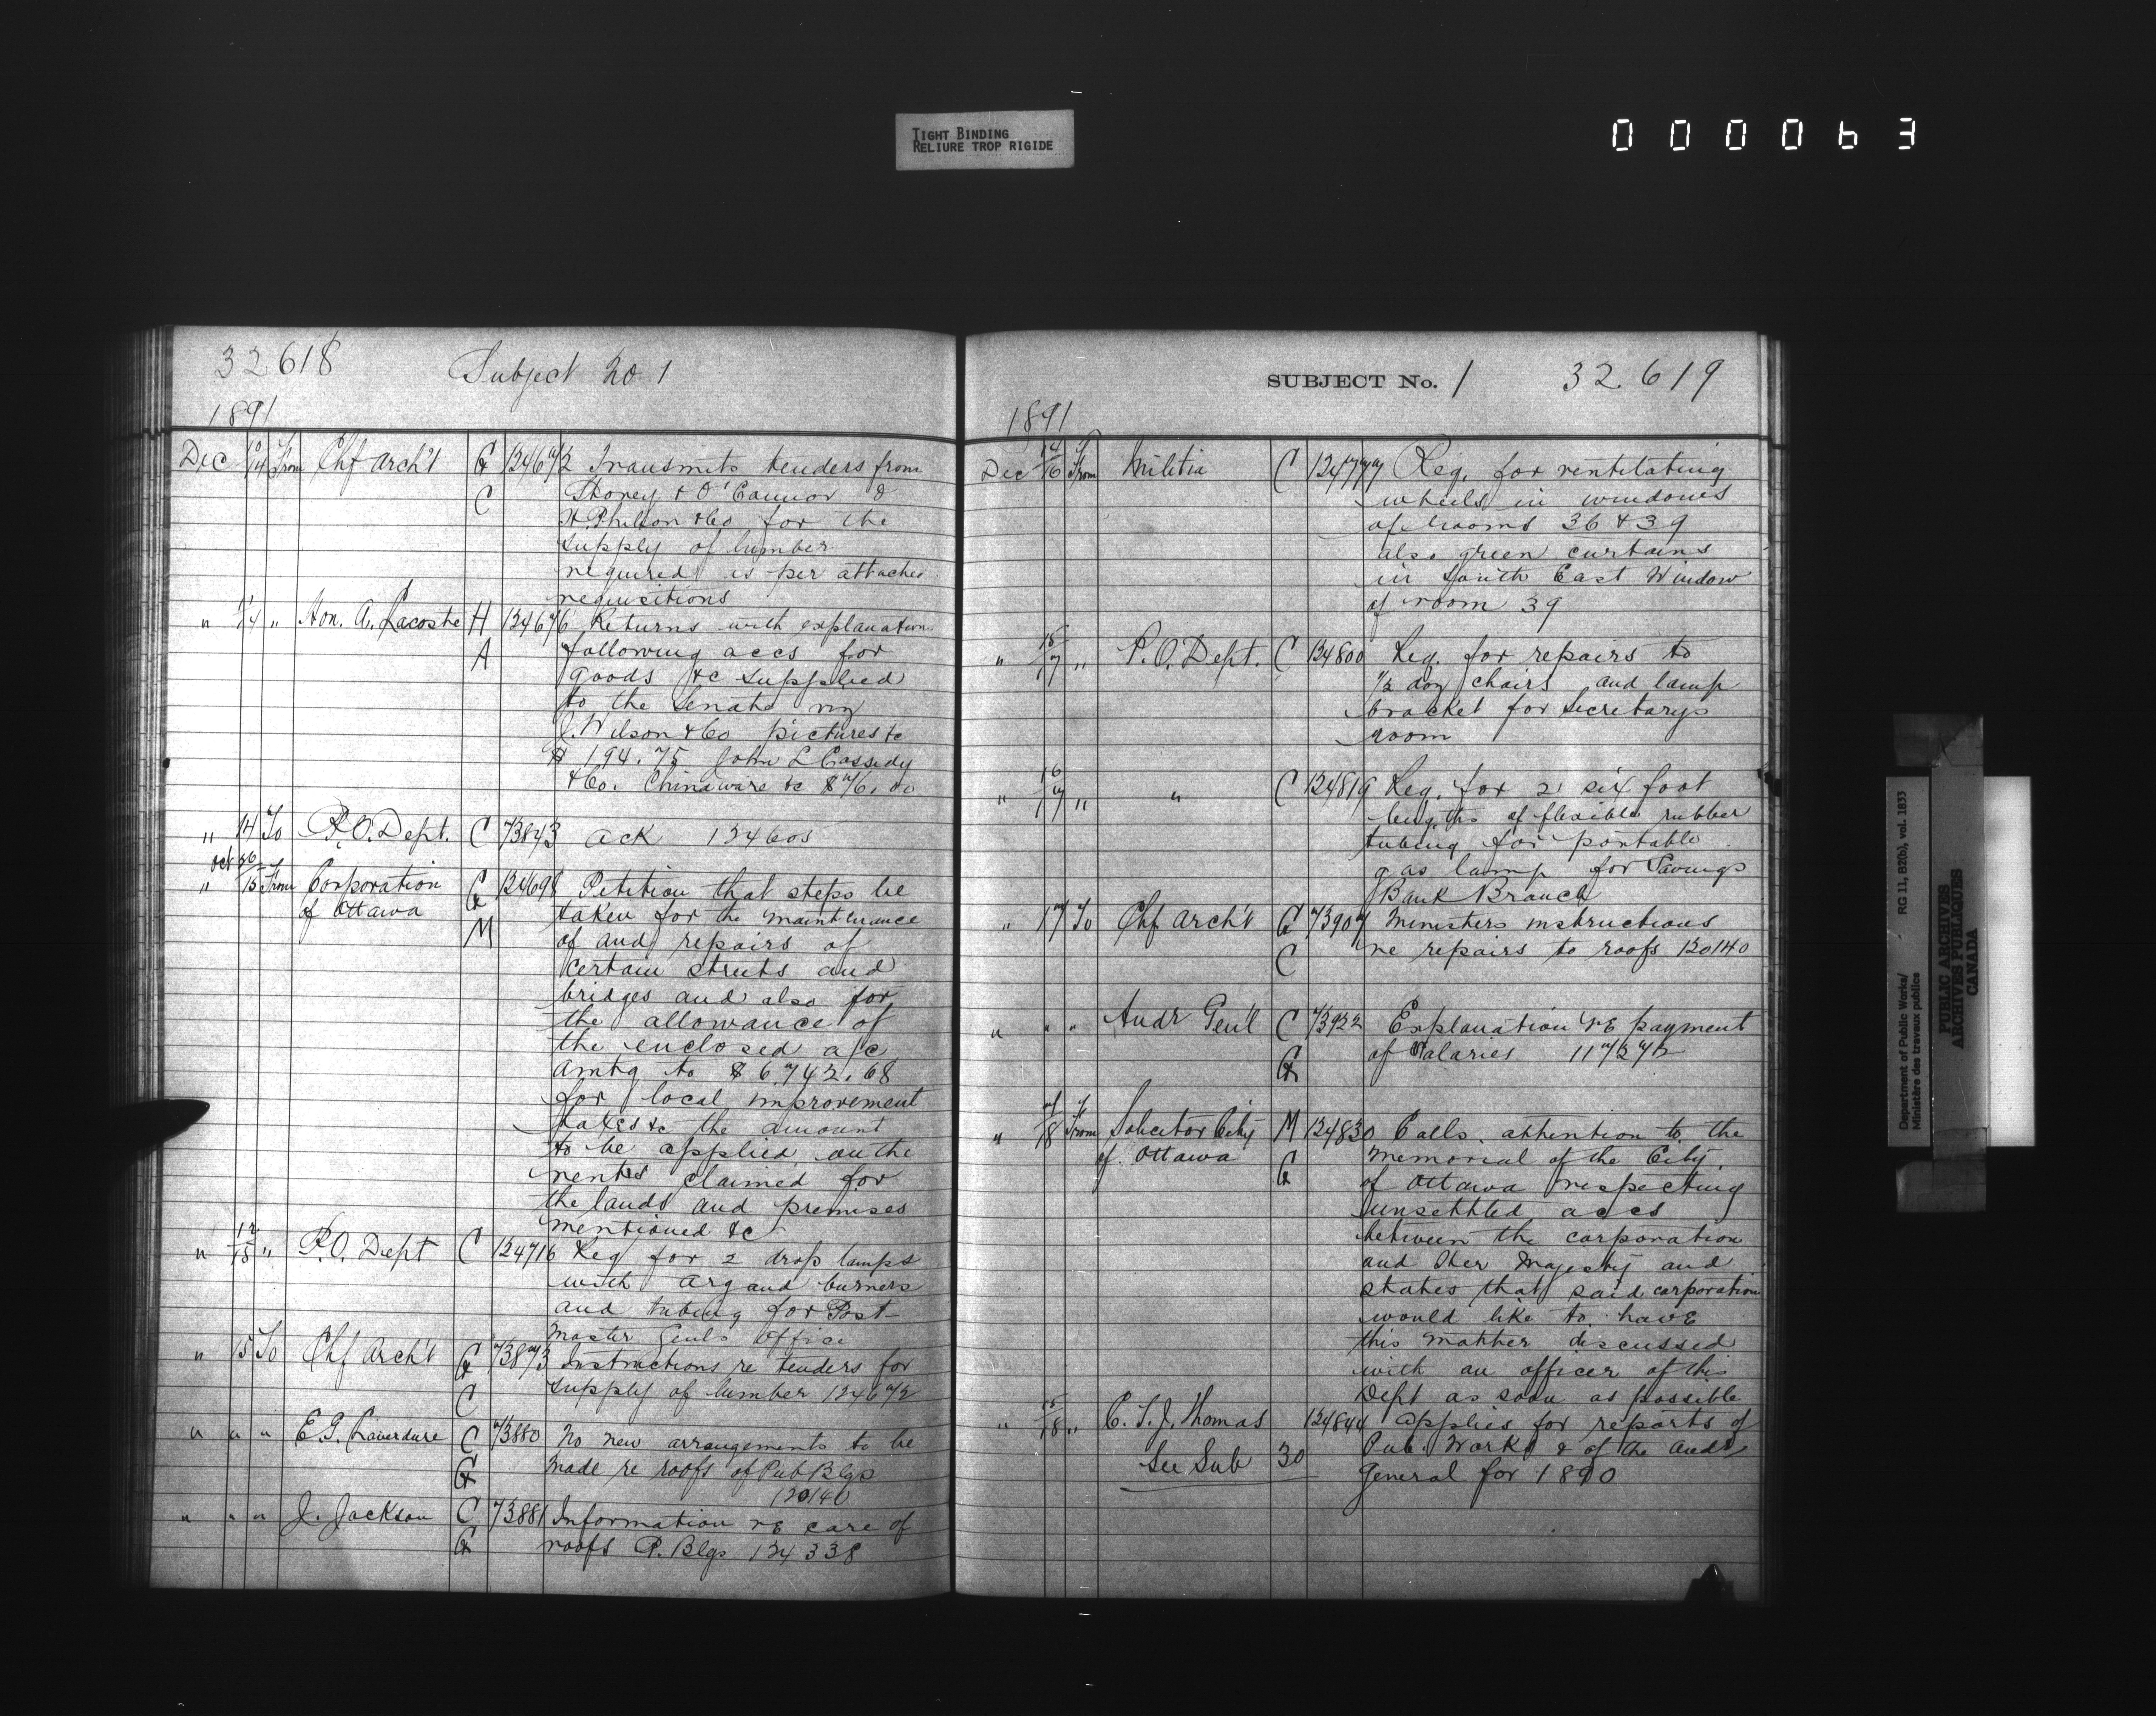 TIGHT BINDING
RELIURE TROP RIGIDE
000063
32618 Subject No 1
1891
Dec 10/14 From Chf Arch't G 124672 Transmits tenders from
C Storey & O'Connor &
& Co for the
supply of lumber
required as per attached
requisitions
" 11/14 " Hon. A. Lacoste H 124676 Returns with explanation
A following accs for
goods &c supplied
to the Senate viz
J. Wilson & Co pictures &c
$194.75 John L Cassidy
& Co. Chinaware &c $76.00
" 14 To P.O. Dept. C 73843 Ack 124605
Oct 26
" 15 From Corporation G 124698 Petition that steps be
of Ottawa M taken for the maintenance
of and repairs of
certain streets and
bridges and also for
the allowance of
the enclosed a/c
amtg to $6,742.68
for local improvement
taxes &c the amount
to be applied on the
rents claimed for
the lands and premises
mentioned &c
" 12/15 " P.O. Dept C 124716 Req for 2 drop lamps
with argand burners
and tubing for Post
Master Genls Office
" 15 To Chf Arch't G 73873 Instructions re tenders for
C supply of lumber 124672
" " " E.G. Laverdure C 73880 No new arrangements to be
G made re roofs of Pub Blgs
120140
" " " J. Jackson C 73881 Information re care of
G roofs P. Blgs 124338
SUBJECT No. 1 32.619
1891
Dec 14/16 From Militia C 124777 Req. for ventilating
wheels in windows
of rooms 36 & 39
also green curtains
in South East Window
of room 39
" 15/17 " P.O. Dept. C 124800 Req. for repairs to
1/2 doz chairs and lamp
bracket for Secretarys
room
" 16/17 " " C 124819 Req. for 2 six foot
lengths of flexible rubber
tubing for portable
gas lamp for Savings
Bank Branch
" 17 To Chf Arch't G 73907 Ministers instructions
C re repairs to roofs 120140
" " " Audr Gen'l C 73922 Explanation re payment
G of Salaries 117272
" 17/18 From Solicitor City M 124830 Calls attention to the
of Ottawa G Memorial of the City
of Ottawa respecting
unsettled accs
between the corporation
and Her Majesty and
states that said corporation
would like to have
this matter discussed
with an officer of this
Dept as soon as possible
" 15/18 " C. S. J. Thomas 124844 Applies for reports of
See Sub 30 Pub. Works & of the Audr
General for 1890
Department of Public Works/ RG 11, B2(b), vol. 1833
Ministère des travaux publics
PUBLIC ARCHIVES
ARCHIVES PUBLIQUES
CANADA